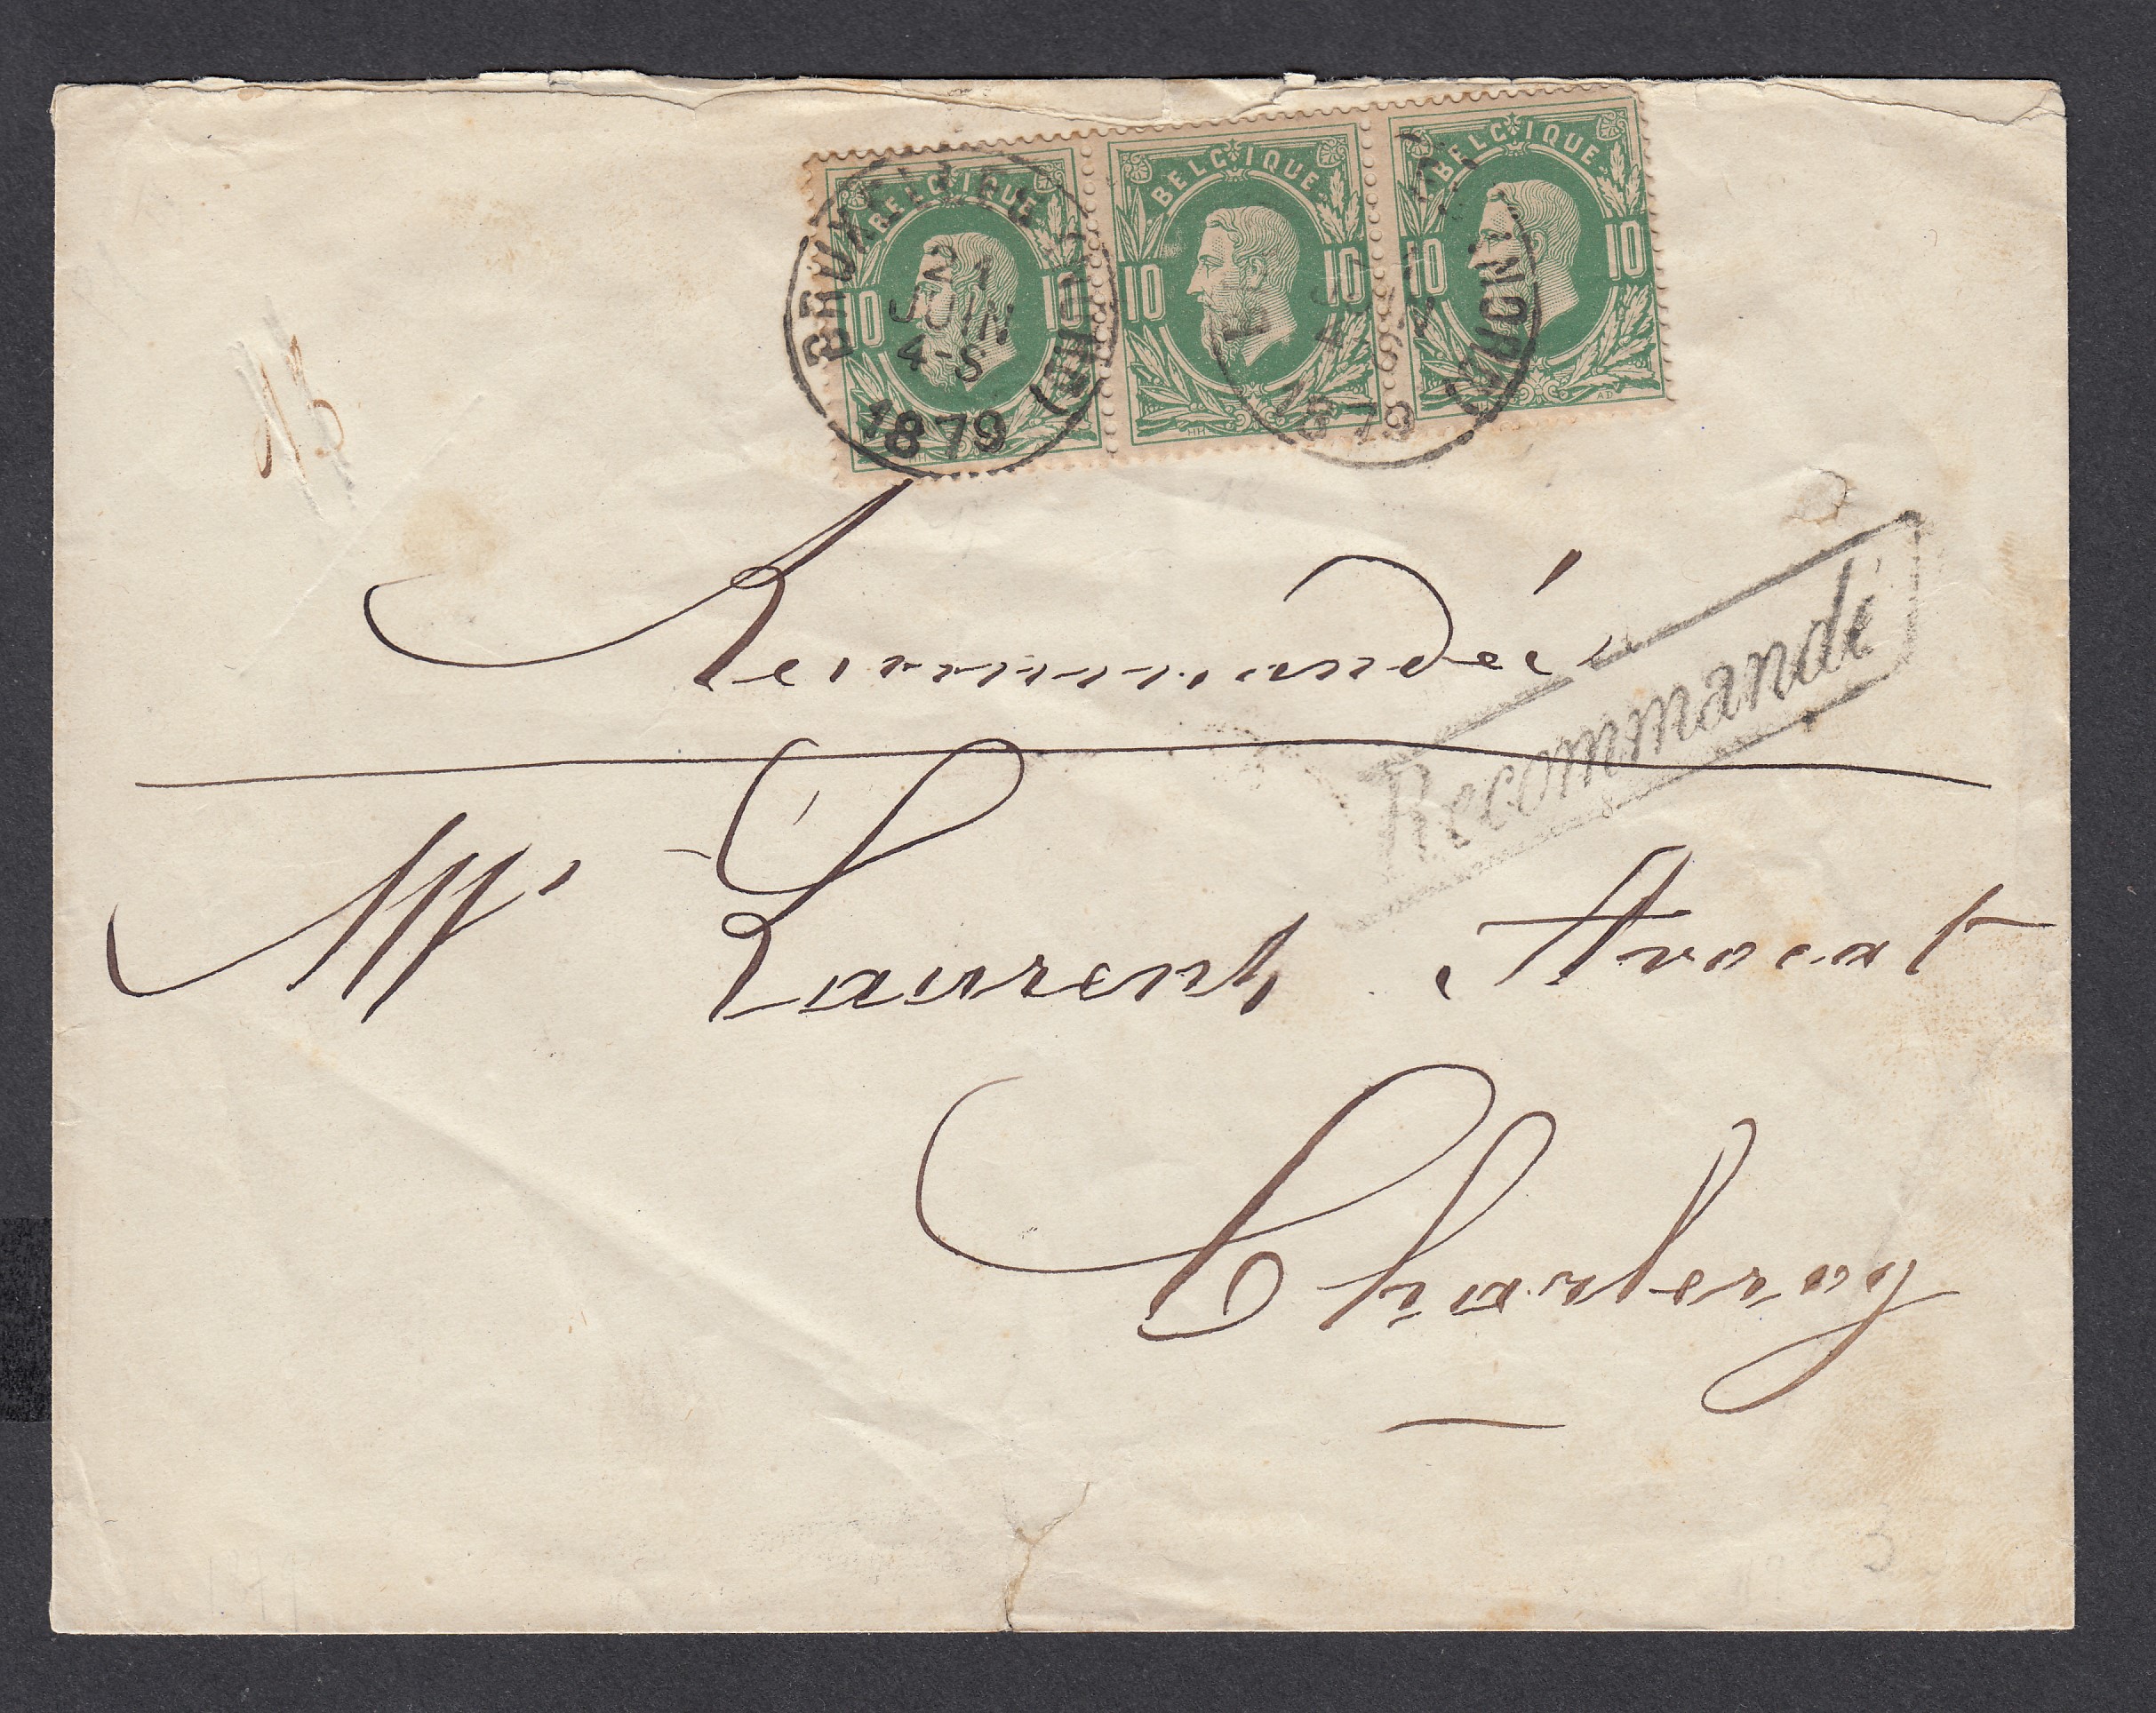 BELGIQUE BELGIQUE BELGIQUE
10 10 10 10 10 10
BRUXELLES (MIDI)
21
JUIN
4-S
1879
(NORD)
1879
Recommandée
Recommandé
Mr Laurent, Avocat
Charleroy
3